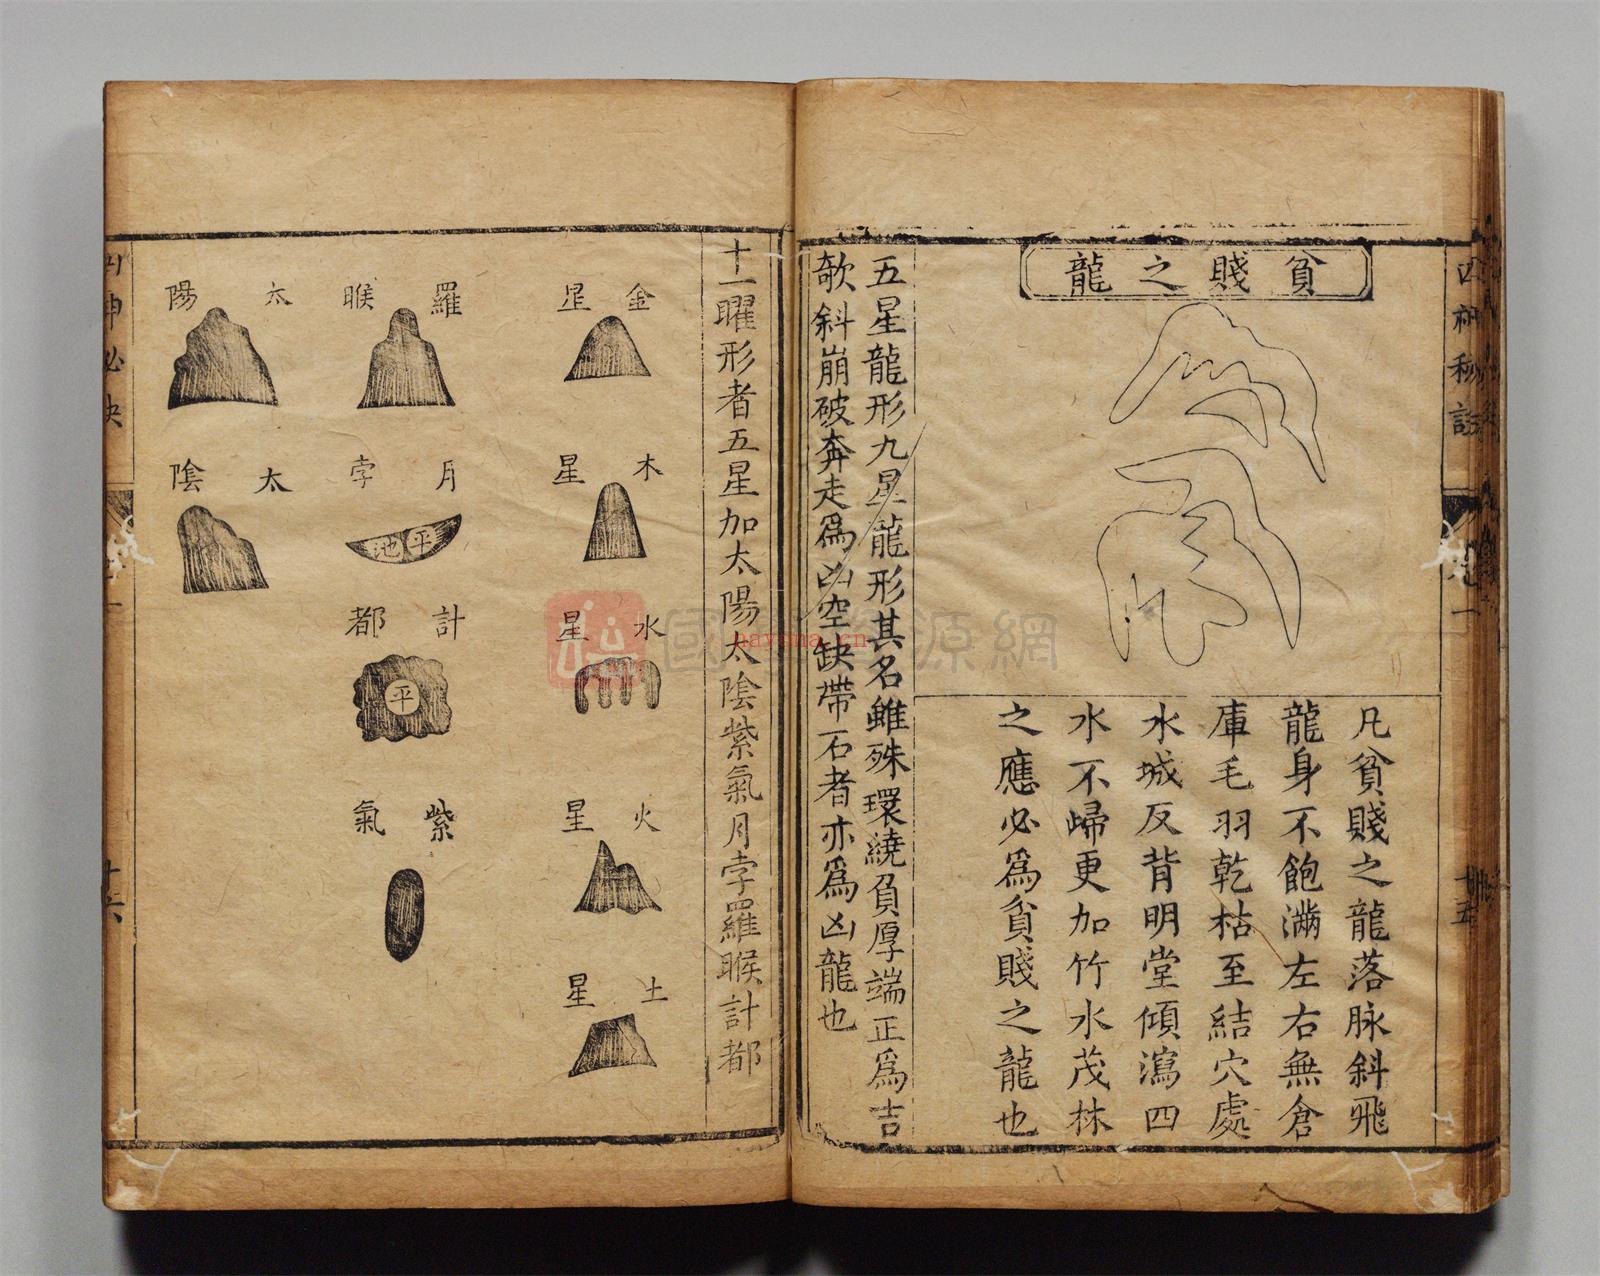 貧賤之龍
凡貧賤之龍落脉斜飛
龍身不飽滿左右無倉
庫毛羽乾枯至結穴處
水城反背明堂傾瀉四
水不歸更加竹水茂林
之應必為貧賤之龍也
五星龍形九星龍形其名雖殊環繞負厚端正為吉
欹斜崩破奔走為凶空缺帶石者亦為凶龍也
十一曜形者五星加太陽太陰紫氣月孛羅睺計都
金星
木星
水星
火星
土星
羅睺
月孛
平池
計都
平
紫氣
太陽
太陰
四神秘訣
卷一
十五
四神必决
十六
nayona.cn